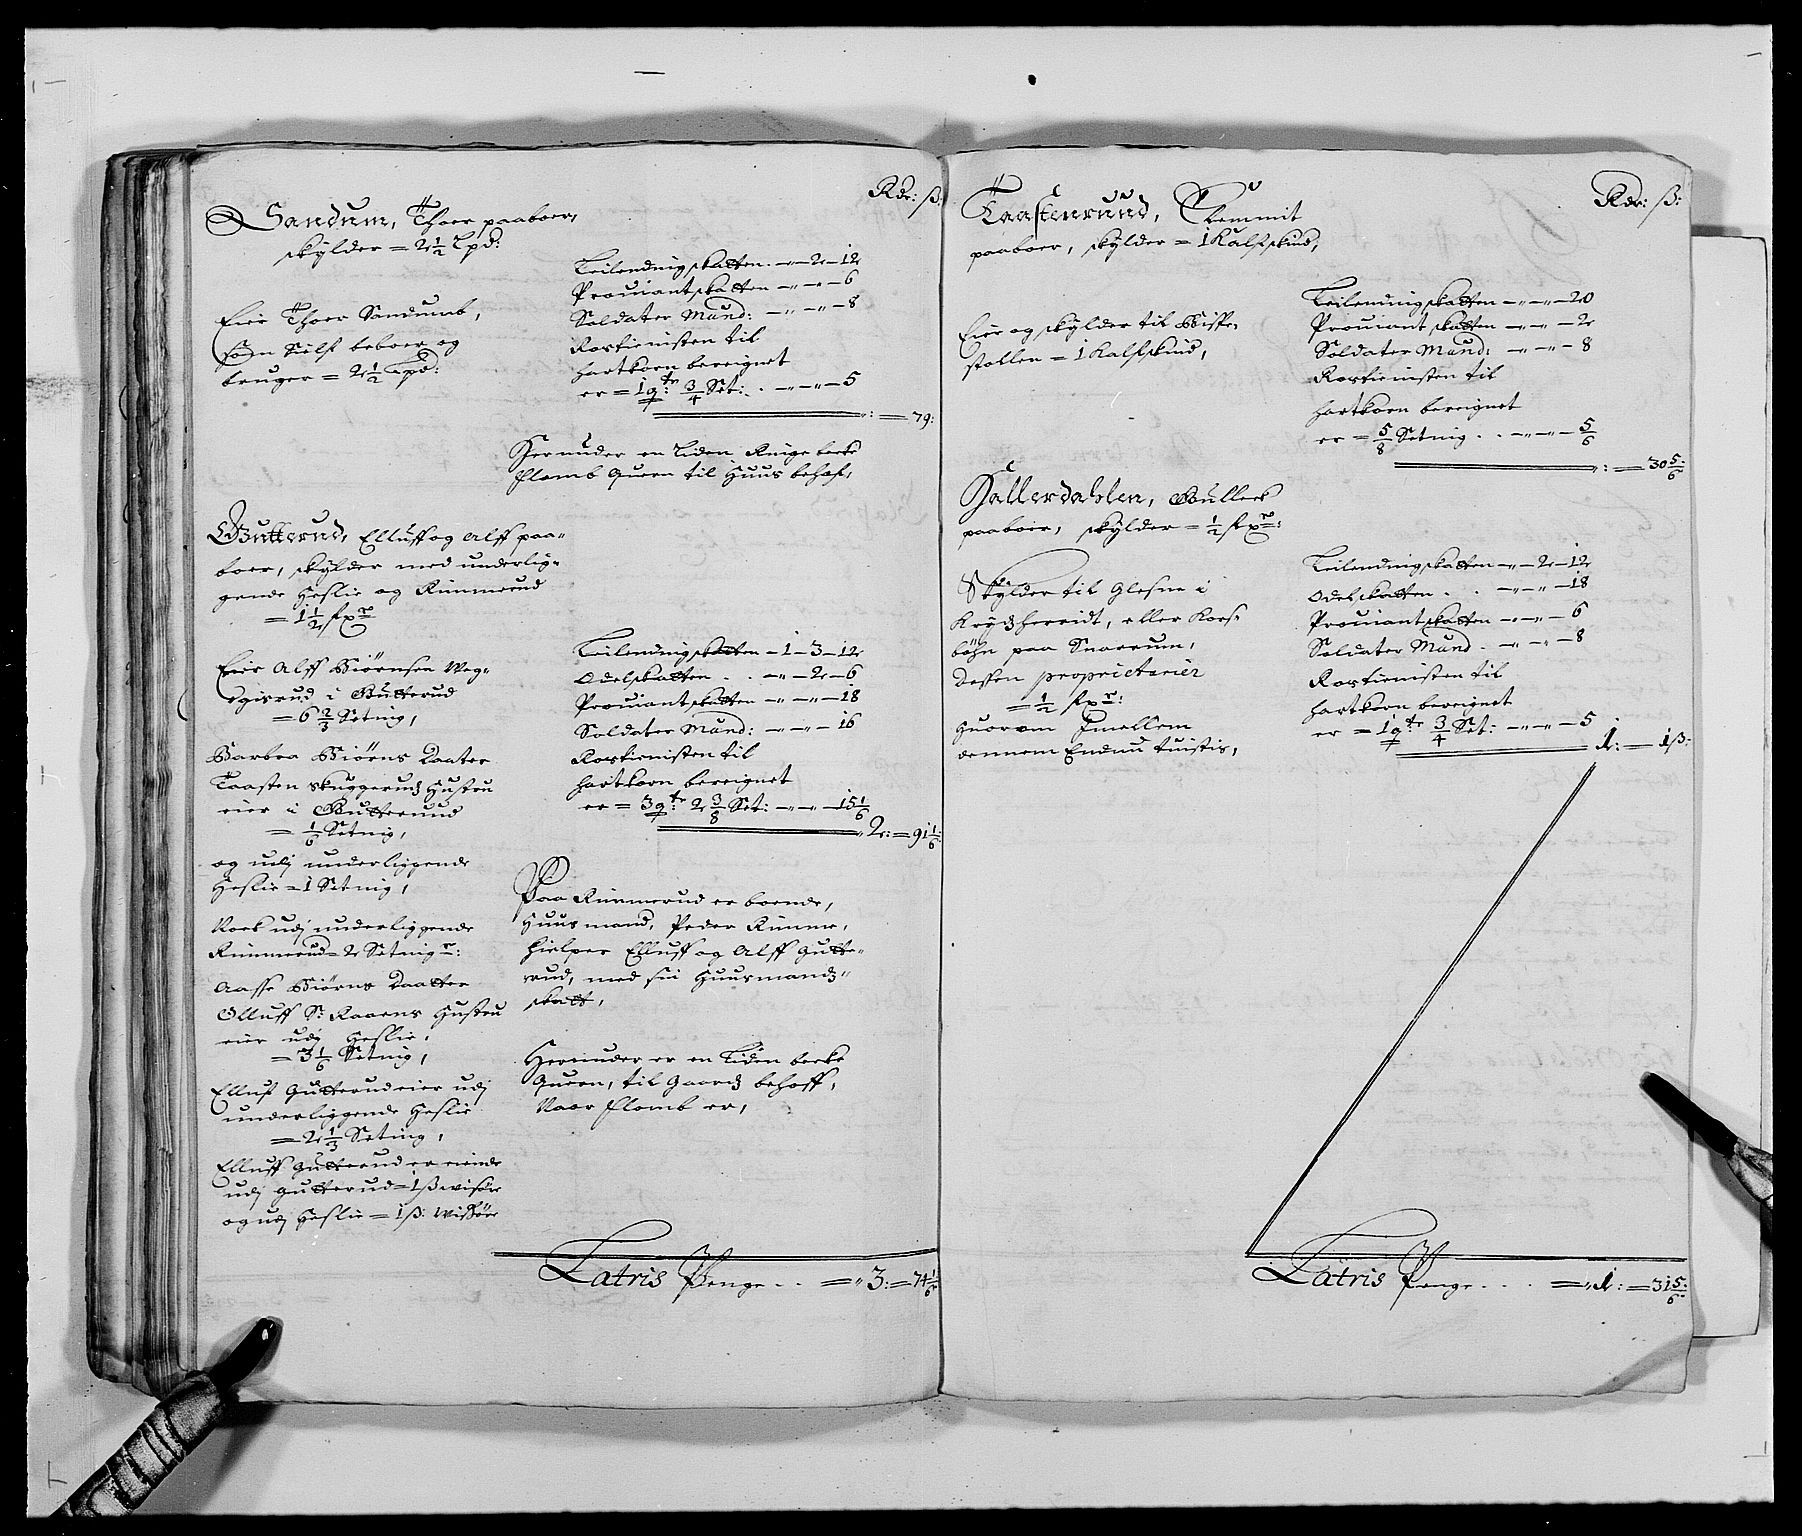 Rdr: ß:
Sandum, Thoer paaboer,
skylder = 2 1/2 Lpd:
Eier Thoer Sandumb,
som Sielf beboer og
bruger = 2 1/2 Lpd:
Leilendingskatten. - „ - 2 - 12
Prouiantskatten - „ - „ - 6
Soldater Mund: - „ - „ - 8
Rostienisten til
hartkorn beregnet
er = 1 qtr: 3/4 Set: . - „ - „ - 5
„: = 79:
Herunder en Liden Ringe beck
flomb Quern til Huus behof,
Gutterud, Elluff og Alff paa-
boer, skylder med underlig-
gende Heslie og Rimmerud
= 1 1/2 fxr
Eier Alff Biørnsen Weg-
gisrud i Gutterud
= 6 2/3 Setnig,
Barbra Biørns Daater
Taasten Skuggeruds Hustru
eier i Gutterud
= 1/6 Setnig,
og udj underliggende
Heslie = 1 Setnig,
Noch udj underliggende
Rimmerud = 2 Setnigr:
Aasse Biørns Daatter
Olluff Sr. Raaens Hustru
eier udj Heslie,
= 3 1/6 Setnig,
Elluf Gutterud eier udj
underliggende Heslie
= 2 1/3 Setnig,
Elluff Gutterud er eiende
udj Gutterud = 1 ß wisøre
og udj Heslie = 1 ß: wissøre
Leilendingskatten - 1 - 3 - 12
Odelskatten . . - „ - 2 - 6
Prouiantskatten - „ - „ - 18
Soldater Mund: - „ - „ - 16
Rostienisten til
hartkorn beregnet
er = 3 qtr: 2 3/8 Set: - „ - „ - 15 1/6
2: = 91 1/6:
Paa Rimmerud er boende,
Huusmand, Peder Rimme,
hielper Elluff og Alff Gutte-
rud, med sin Huusmands-
skatt,
Herunder er en Liden beck
Quern, til Gaards behoff,
Naar flomb er,
Latris Penge . . = „ 3: = 74 1/6
Rdr: ß:
Taastenrund, Clemmit
paaboer, skylder = 1 Kalfskind,
Eier og skylder til Bispe-
stollen = 1 Kalfskind,
Leilendingskatten - „ - „ - 20
Prouiantskatten - „ - „ - 2
Soldater Mund: - „ - „ - 8
Rostienisten til
hartkorn beregnet
er = 5/8 Setnig . . - „ - „ - 5/6
„: = 30 5/6:
Hallerdahlen, Gulleck
paaboer, skylder = 1/2 fxr:
Skylder til Glesne i
Krydsherridt, eller Kors-
böhn paa Snarrum,
Dessen proprietarier
= 1/2 fxr:
Huorom Imellem
dennem Endnu tuistis,
Leilendingskatten - „ - 2 - 12
Odelskatten . . - „ - „ - 18
Prouiantskatten - „ - „ - 6
Soldater Mund . - „ - „ - 8
Rostienisten til
hartkorn beregnet
er = 1 qtr 3/4 Set: - „ - „ - 5
1: = 1 ß:
Latris Penge . . . = „ 1: = 31 5/6: